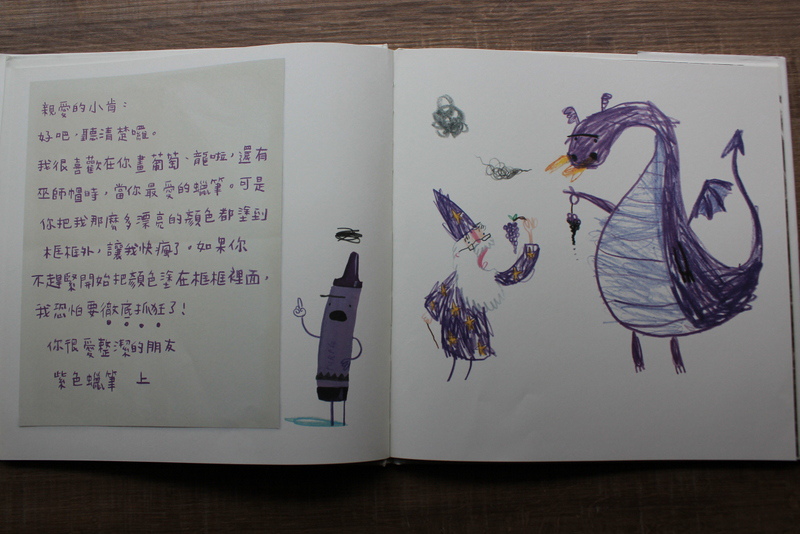 親愛的小肯：
好吧，聽清楚囉。
我很喜歡在你畫葡萄、龍啦，還有
巫師帽時，當你最愛的蠟筆。可是
你把我那麼多漂亮的顏色都塗到
框框外，讓我快瘋了。如果你
不趕緊開始把顏色塗在框框裡面，
我恐怕要徹底抓狂了！
你很愛整潔的朋友
紫色蠟筆 上